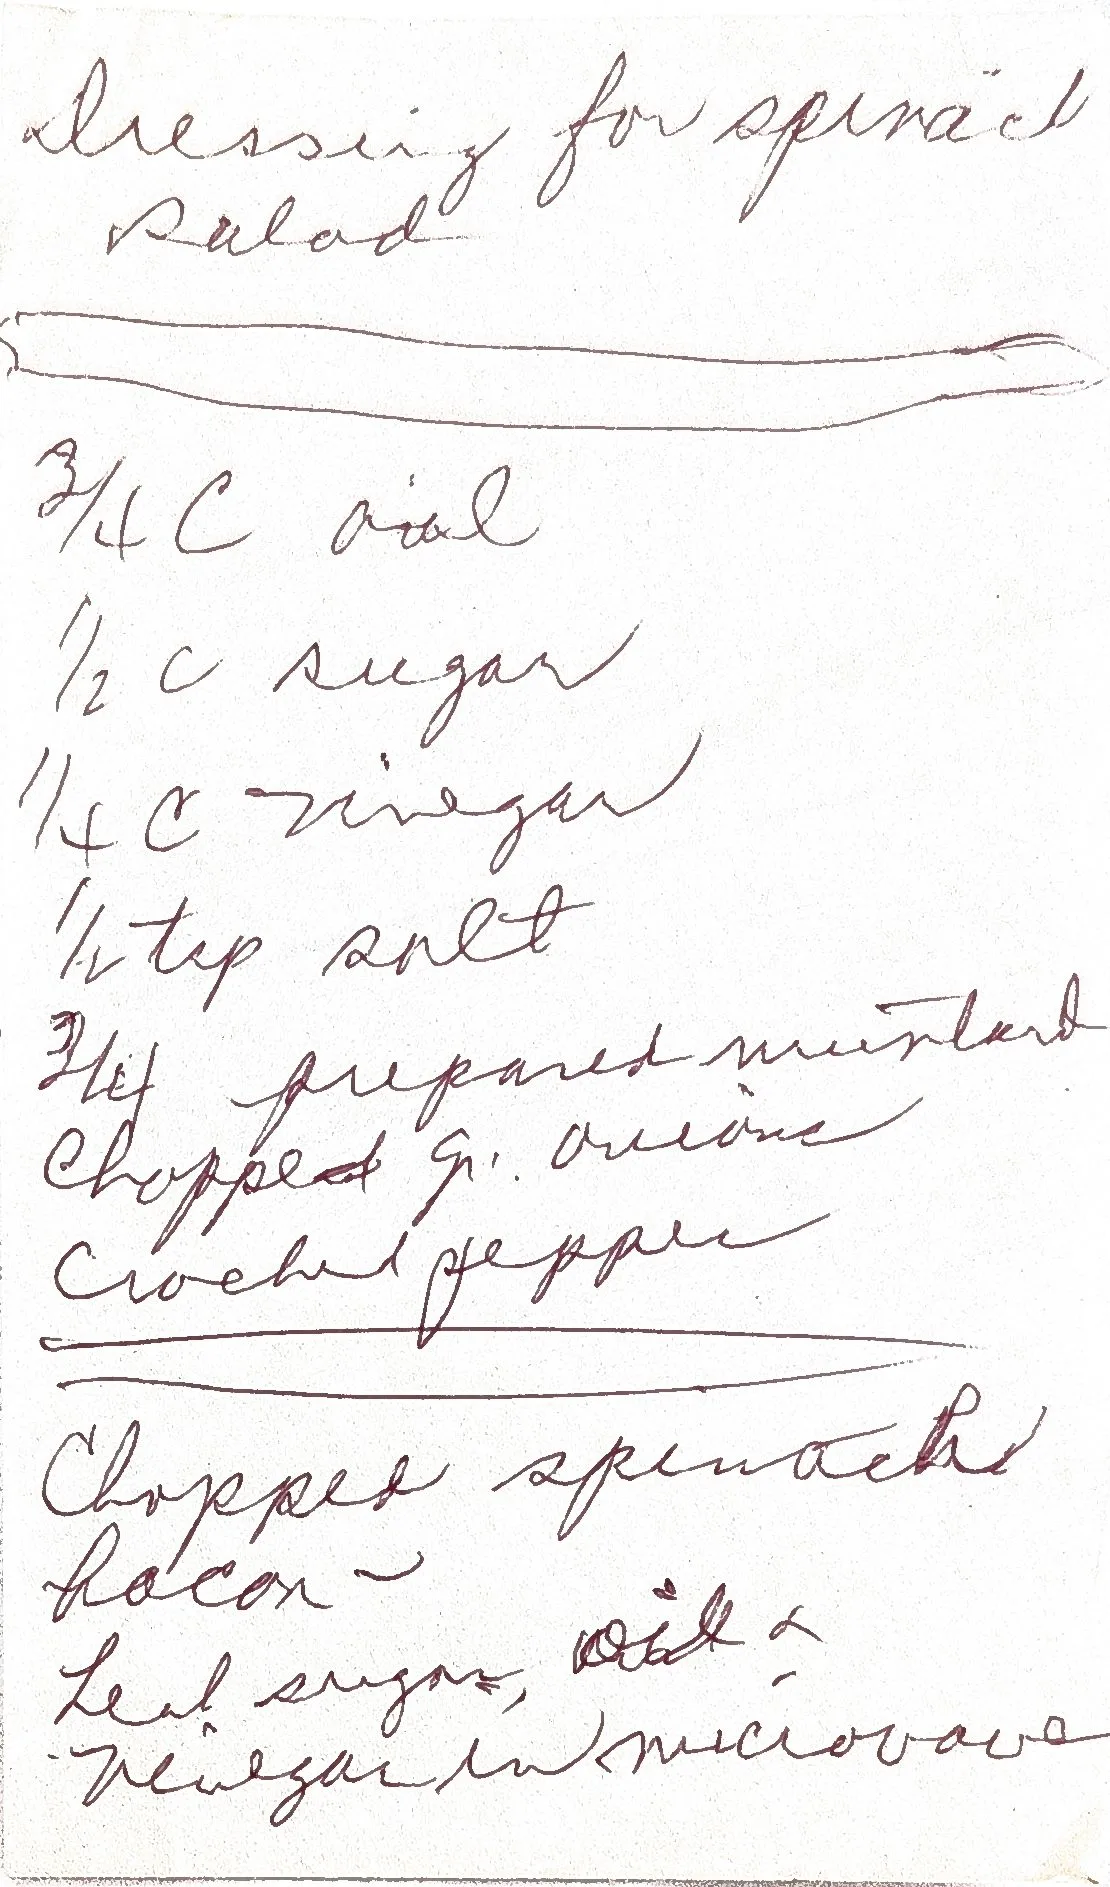 Dressing for spinach
salad
3/4 C oil
1/2 C sugar
1/4 C vinegar
1/2 tsp salt
3/4 prepared mustard
Chopped gr. onions
Cracked pepper
Chopped spinach
bacon -
Heat sugar, oil &
vinegar in microwave